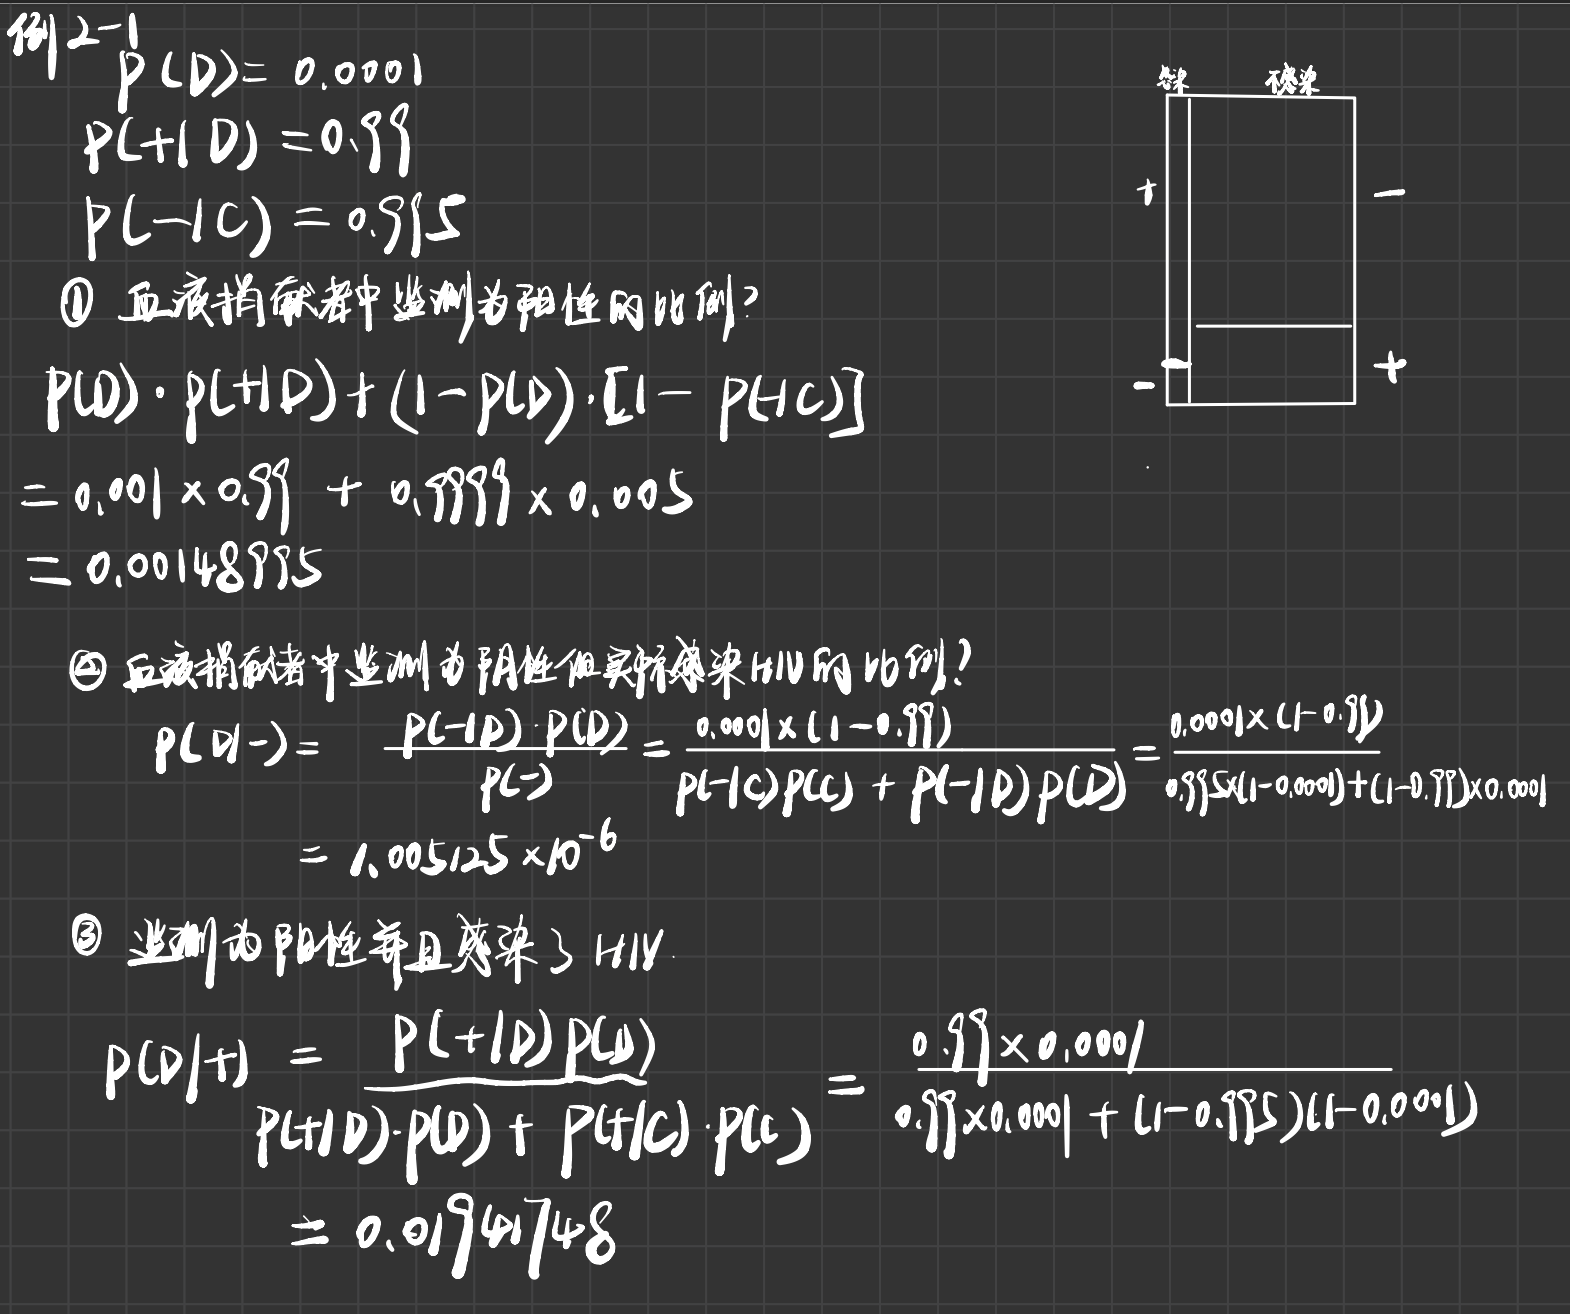 例2-1
P(D)= 0.0001
P(+|D)=0.99
P(-|C)=0.995
感染 不感染
+ -
- - +
① 血液捐献者中监测为阳性的比例?
P(D)·P(+|D)+(1-P(D)·[1-P(-|C)]
=0.001×0.99 + 0.9999×0.005
=0.00148995
② 血液捐献者中监测为阴性但实际感染HIV的比例?
P(D|-)= P(-|D)·P(D) / P(-) = 0.0001×(1-0.99) / P(-|C)P(C)+P(-|D)P(D) = 0.0001×(1-0.99) / 0.995×(1-0.0001)+(1-0.99)×0.0001
= 1.005125×10⁻⁶
③ 监测为阳性并且感染了HIV.
P(D|+) = P(+|D)P(D) / P(+|D)·P(D)+P(+|C)·P(C) = 0.99×0.0001 / 0.99×0.0001+(1-0.995)(1-0.0001)
= 0.01941748